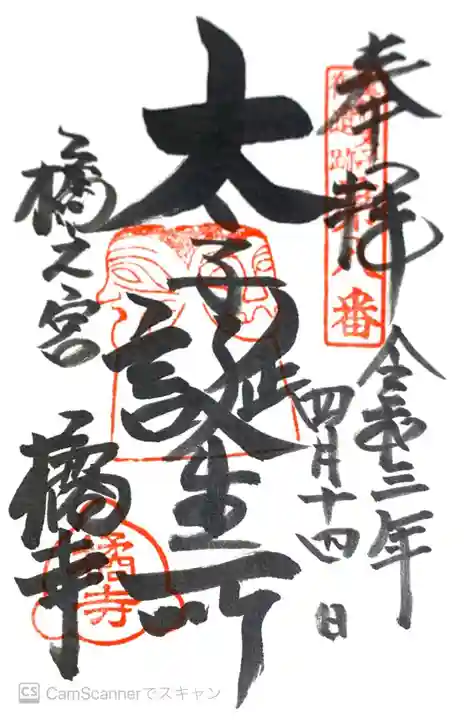 奉拝
令和三年
四月十四日
太子誕生所
橘之宮
橘寺
第八番
橘寺
CS CamScannerでスキャン